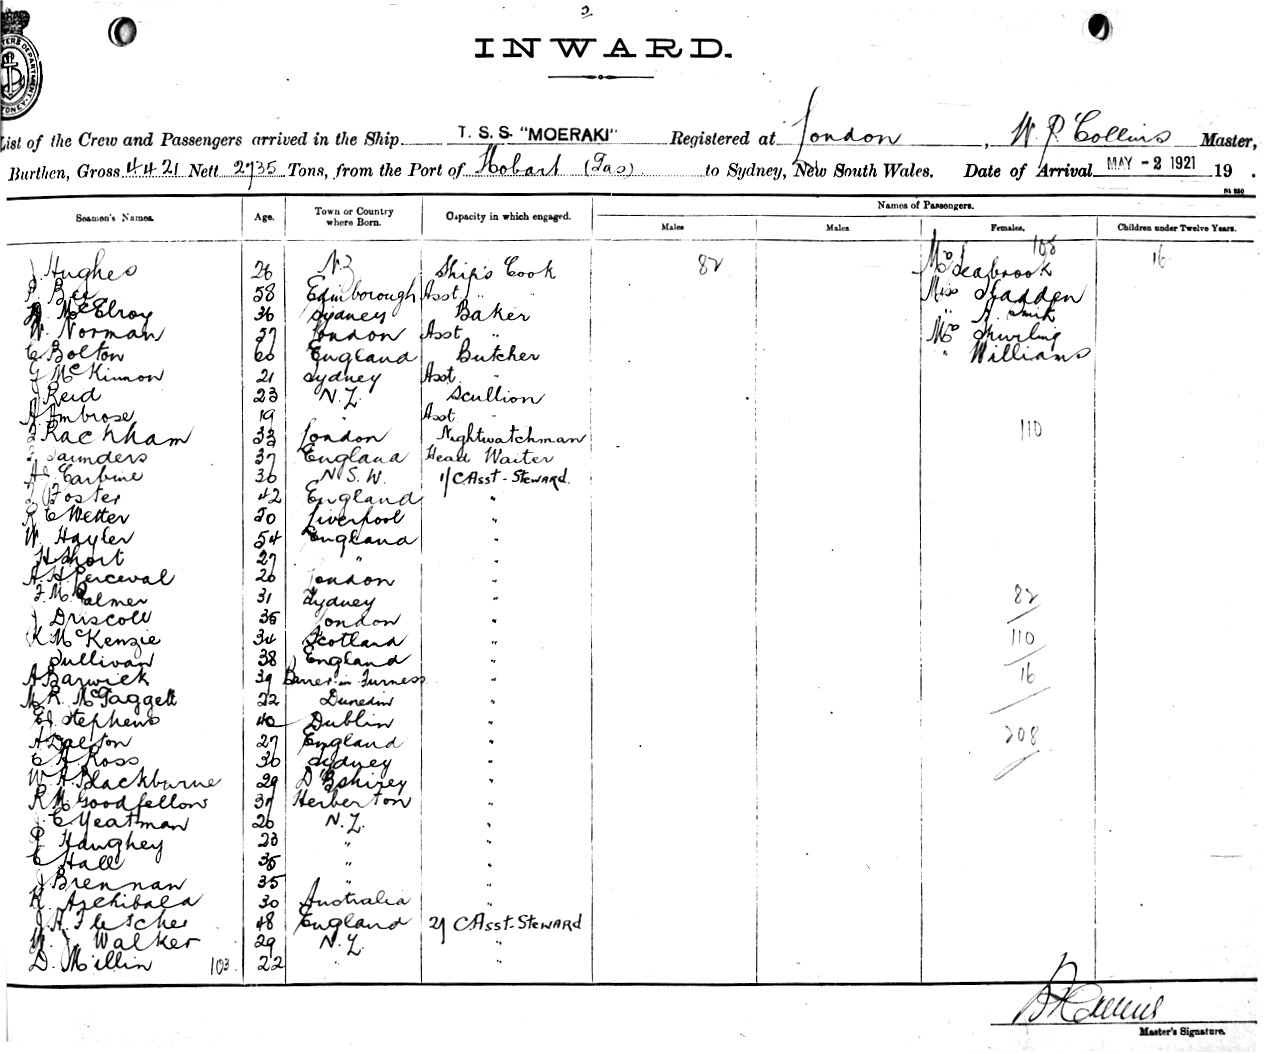 INWARD.
List of the Crew and Passengers arrived in the Ship T. S. S. "MOERAKI" Registered at London, W P Collins Master,
Burthen, Gross 4421 Nett 2735 Tons, from the Port of Hobart (Tas) to Sydney, New South Wales. Date of Arrival MAY -2 1921 19 .
Names of Passengers.
Seamen's Names. Age. Town or Country where Born. Capacity in which engaged. Males Males Females. Children under Twelve Years.
J Hughes 26 N.Z Ship's Cook 82 Mrs Seabrook 108 16
58 Edinborough Asst " " Miss Spadden
McElroy 36 Sydney Baker " A. Smith
W Norman 57 London Asst " Mrs Spurling
C Bolton 60 England Butcher " Williams
J McKinnon 21 Sydney Asst "
J Reid 23 N.Z. Scullion
A Ambrose 19 " Asst "
F Rackham 33 London Nightwatchman 110
F Saunders 37 England Head Waiter
A J Carbine 30 N.S.W. 1/C Asst-Steward.
Foster 42 England "
R C Wetter 50 Liverpool "
W Hayler 54 England "
H Short 27 " "
A H Perceval 26 London "
F. M. Palmer 31 Sydney " 82
J Driscoll 35 London "
K McKenzie 34 Scotland " 110
Sullivan 38 England "
A Barwick 39 Barrer in Furness " 16
M R. McTaggett 22 Dunedin "
E J Stephens 40 Dublin "
A Dalton 27 England " 208
C A Ross 30 Sydney "
W A Blackburne 29 "
R M Goodfellow 37 Herberton "
J C Yeatman 26 N.Z. "
P Haughey 23 " "
C Hall 35 " "
J Brennan 35 " "
K. Archibald 30 Australia "
J A Fletcher 48 England 2/ C Asst-Steward
W. J. Walker 29 N.Z. "
D. Millin 103 22 " "
Master's Signature.